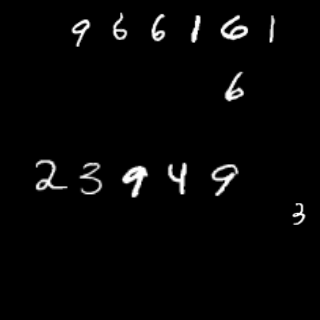 966161
6
23949
3